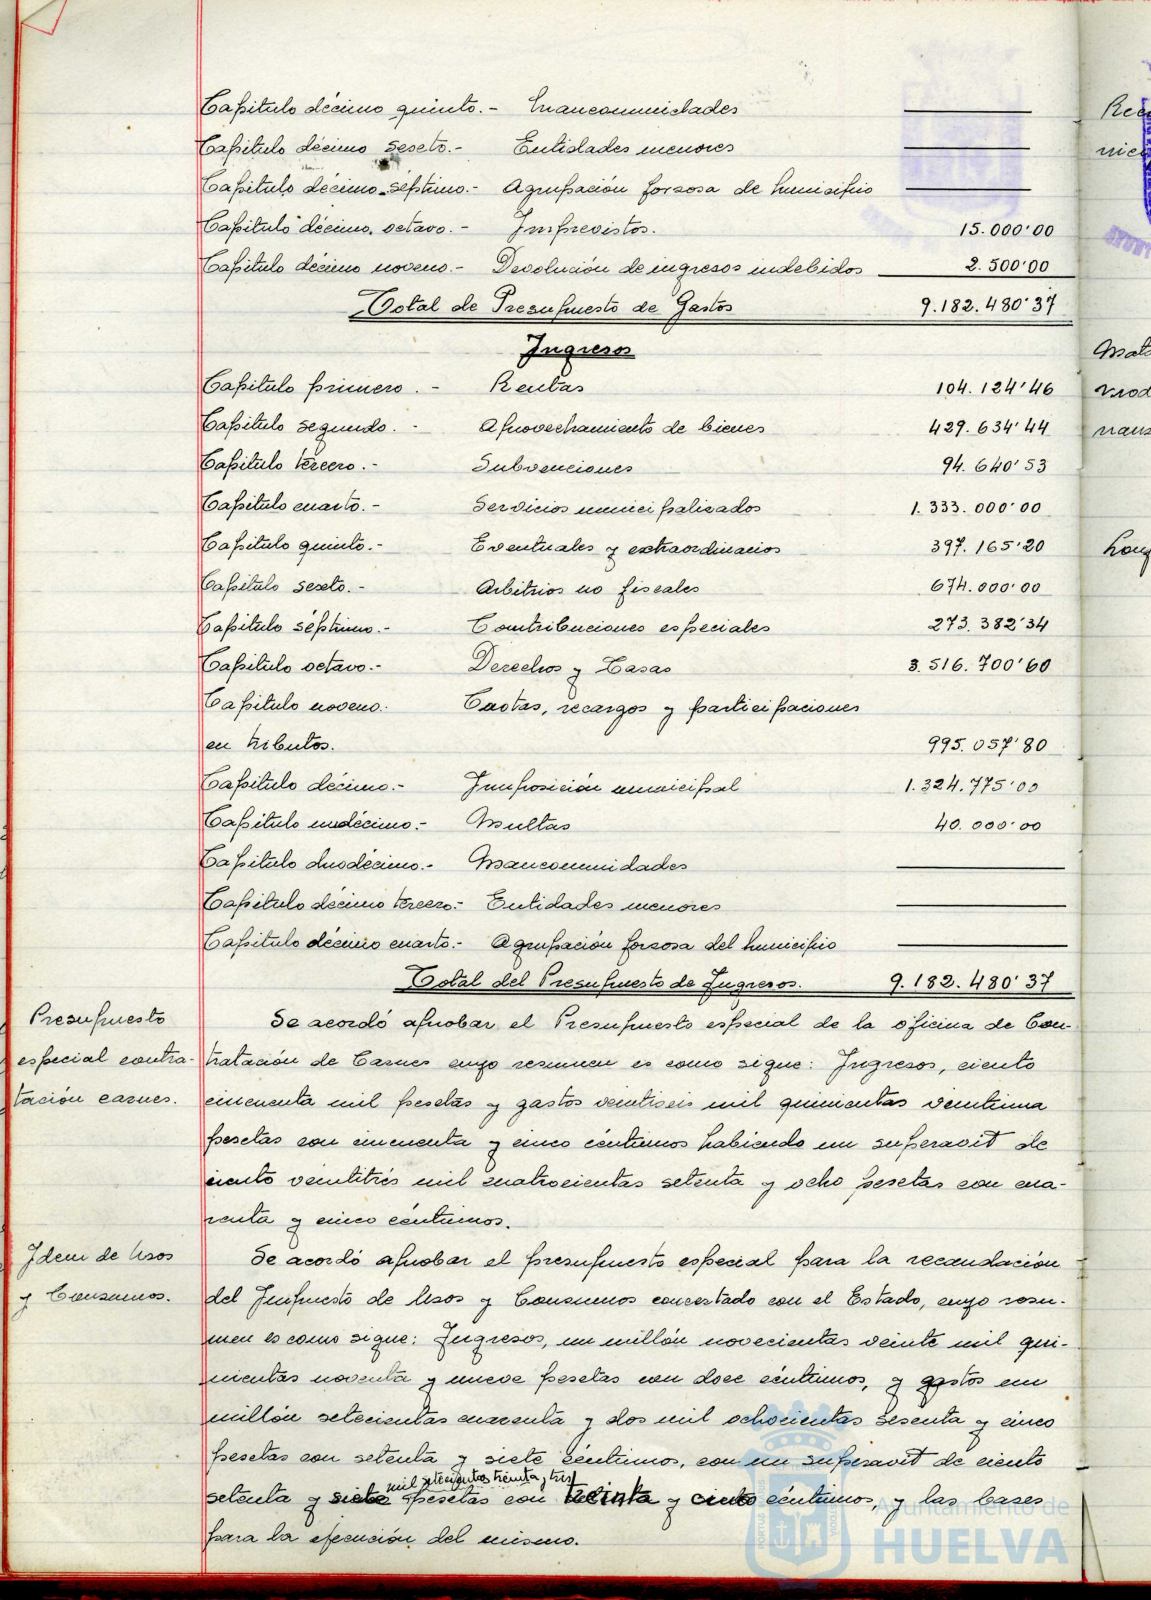 Capítulo décimo quinto.- Mancomunidades ———
Capítulo décimo sesto.- Entidades menores ———
Capítulo décimo séptimo.- Agrupación forzosa de Municipio ———
Capítulo décimo octavo.- Imprevistos. 15.000'00
Capítulo décimo noveno.- Devolución de ingresos indebidos 2.500'00
Total de Presupuesto de Gastos 9.182.480'37
Ingresos
Capítulo primero.- Rentas 104.124'46
Capítulo segundo.- Aprovechamiento de bienes 429.634'44
Capítulo tercero.- Subvenciones 94.640'53
Capítulo cuarto.- Servicios municipalizados 1.333.000'00
Capítulo quinto.- Eventuales y extraordinarios 397.165'20
Capítulo sesto.- Arbitrios no fiscales 674.000'00
Capítulo séptimo.- Contribuciones especiales 273.382'34
Capítulo octavo.- Derechos y Tasas 3.516.700'60
Capítulo noveno.- Cuotas, recargos y participaciones
en tributos. 995.057'80
Capítulo décimo.- Imposición municipal 1.324.775'00
Capítulo undécimo.- Multas 40.000'00
Capítulo duodécimo.- Mancomunidades ———
Capítulo décimo tercero.- Entidades menores ———
Capítulo décimo cuarto.- Agrupación forzosa del Municipio ———
Total del Presupuesto de Ingresos. 9.182.480'37
Presupuesto
especial contra-
tación carnes.
Se acordó aprobar el Presupuesto especial de la oficina de Con-
tratación de Carnes cuyo resumen es como sigue: Ingresos, ciento
cincuenta mil pesetas y gastos veintiseis mil quinientas veintiuna
pesetas con cincuenta y cinco céntimos habiendo un superavit de
ciento veintitrés mil cuatrocientas setenta y ocho pesetas con cua-
renta y cinco céntimos.
Idem de Usos
y Consumos.
Se acordó aprobar el presupuesto especial para la recaudación
del Impuesto de Usos y Consumos concertado con el Estado, cuyo resu-
men es como sigue: Ingresos, un millón novecientas veinte mil qui-
nientas noventa y nueve pesetas con doce céntimos, y gastos un
millón setecientas cuarenta y dos mil ochocientas sesenta y cinco
pesetas con setenta y siete céntimos, con un superavit de ciento
mil setecientas treinta y tres
setenta y siete pesetas con treinta y cinco céntimos, y las bases
para la ejecución del mismo.
Ayuntamiento de
HUELVA